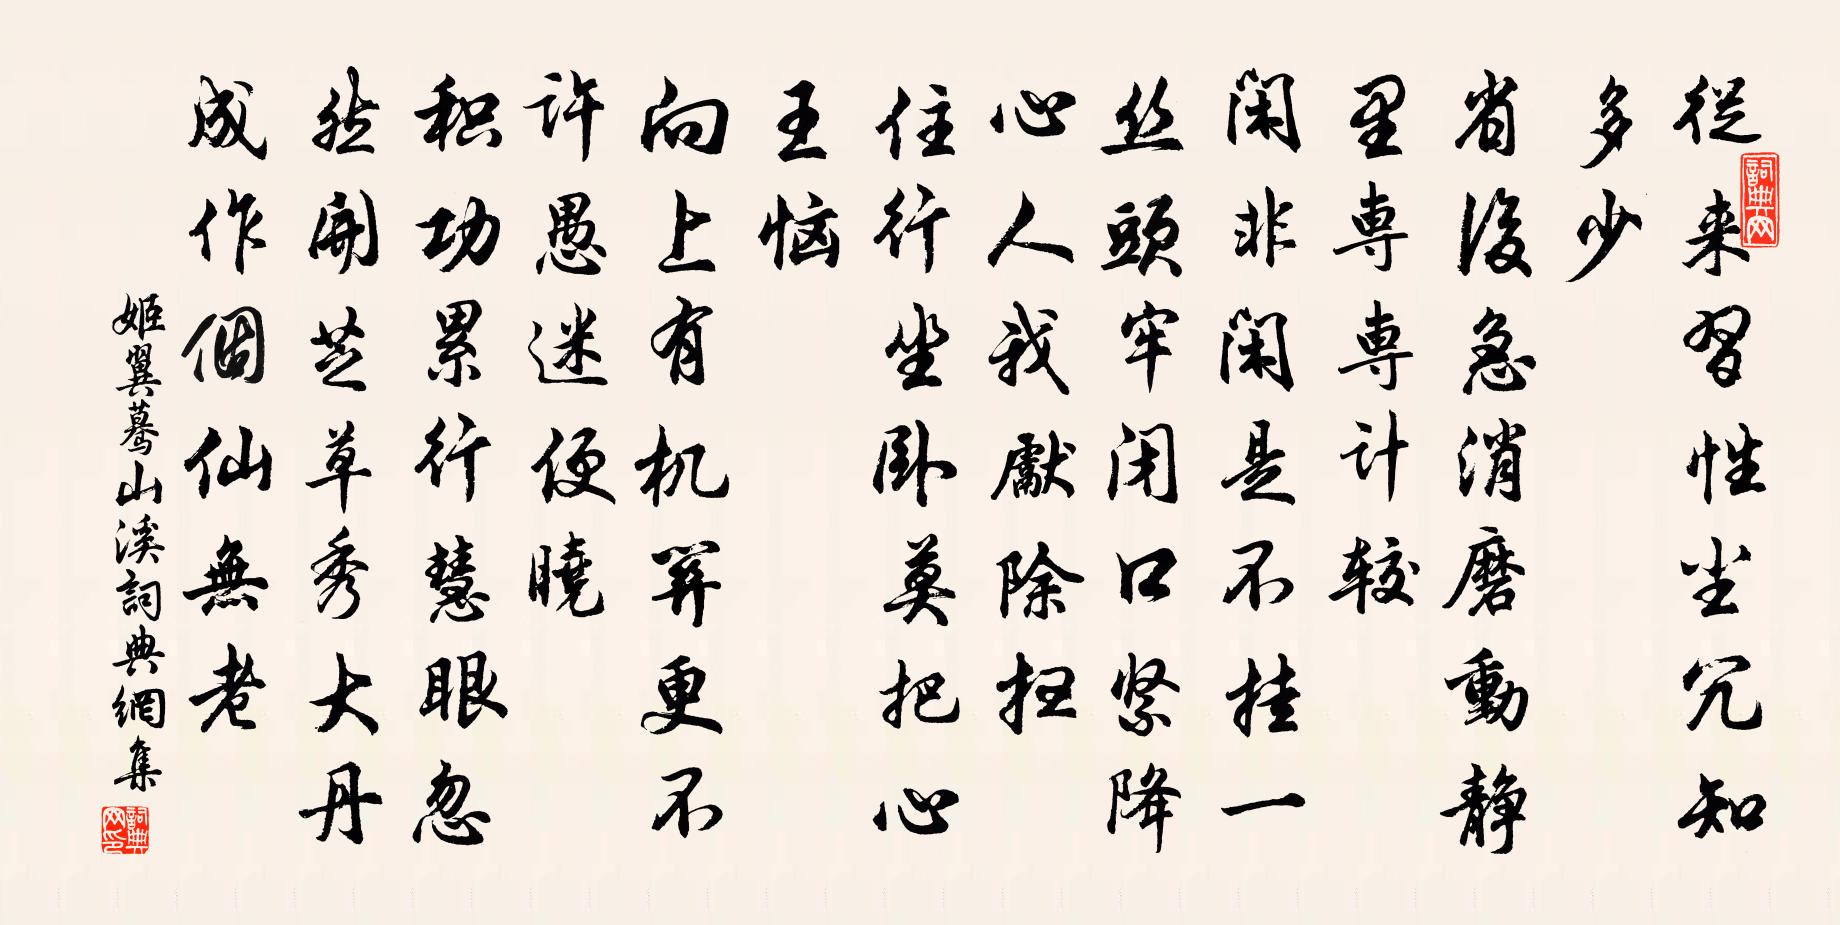 從来習性尘冗知
多少
省後急消磨動静
里専専計較
闲非闲是不挂一
丝頭牢闭口紧降
心人我獻除扫
住行坐卧莫把心
王恼
向上有机関更不
許愚迷便曉
积功累行慧眼忽
然開芝草秀大丹
成作個仙無老
姬翼驀山溪詞典網集
詞典网
詞典网印